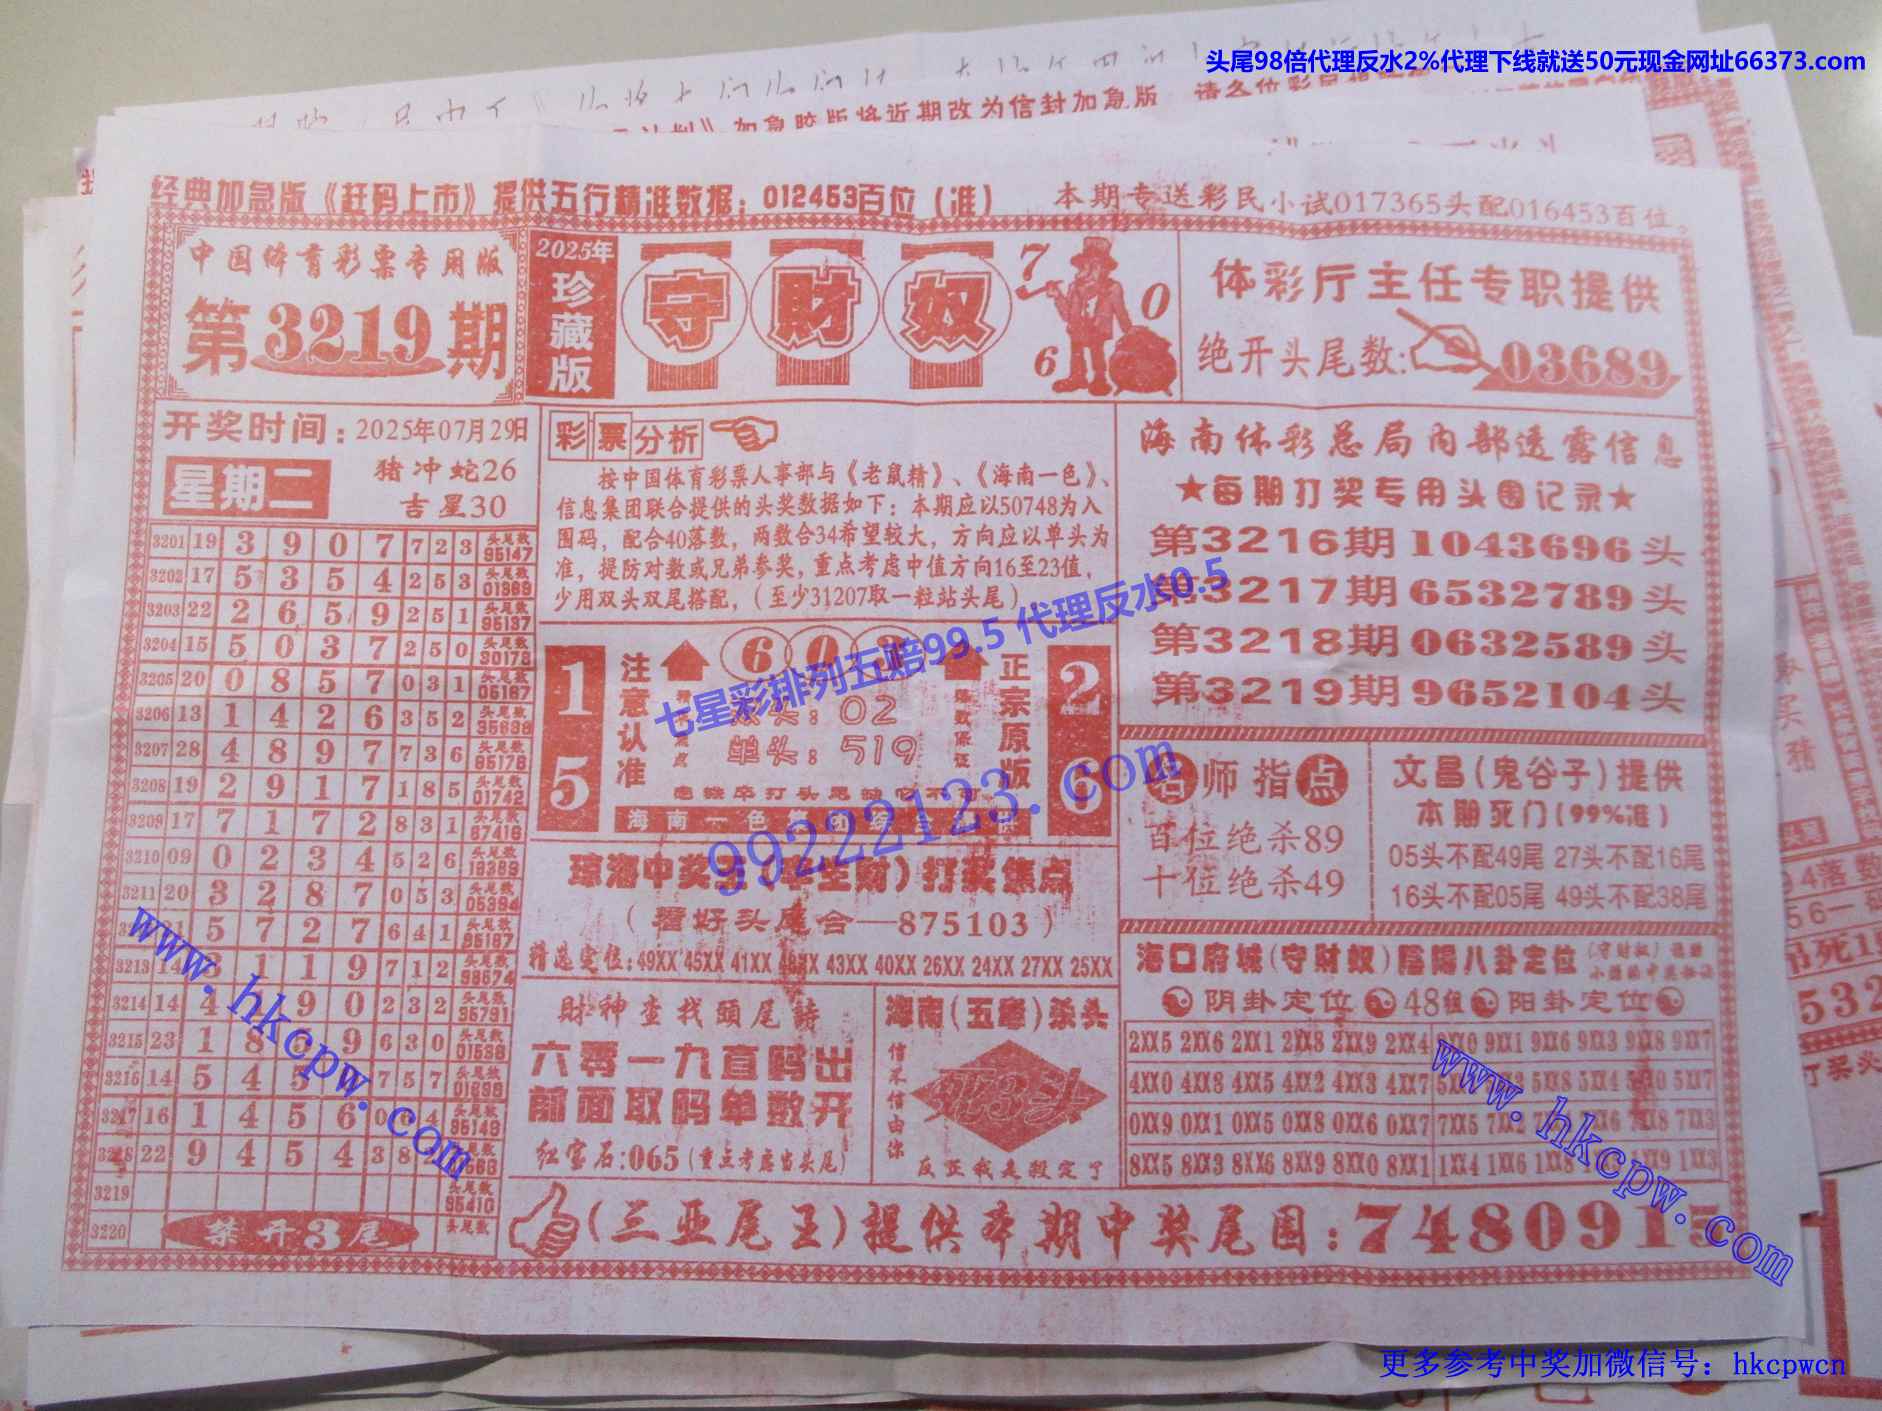 头尾98倍代理反水2%代理下线就送50元现金网址66373.com
加急胶版将近期改为信封加急版
经典加急版《赶码上市》提供五行精准数据：012453百位（准）
本期专送彩民小试017365头配016453百位。
中国体育彩票专用版
第3219期
2025年
珍藏版
守財奴
7
0
6
体彩厅主任专职提供
绝开头尾数:03689
开奖时间：2025年07月29日
星期二
猪冲蛇26
吉星30
3201 19 3 9 0 7 7 2 3 头尾数 95147
3202 17 5 3 5 4 2 5 3 头尾数 01369
3203 22 2 6 5 9 2 5 1 头尾数 95137
3204 15 5 0 3 7 2 5 0 头尾数 30178
3205 20 0 8 5 7 0 3 1 头尾数 05167
3206 13 1 4 2 6 3 5 2 头尾数
3207 28 4 8 9 7 7 3 6 头尾数 95178
3208 19 2 9 1 7 1 8 5 头尾数 01742
3209 17 7 1 7 2 8 3 1 头尾数 67416
3210 09 0 2 3 4 5 2 6 头尾数
3211 20 3 2 8 7 0 5 3 头尾数 05394
5 7 2 7 6 4 1 头尾数
3213 14 1 1 9 7 1 2 头尾数
3214 14 4 9 0 2 3 2 头尾数 95791
3215 23 1 8 9 6 3 0 头尾数
3216 14 5 4 7 5 7 头尾数
3217 16 1 4 5 6 0 4 头尾数
3218 22 9 4 5 4 3 8 头尾数
3219 头尾数 95410
3220 头尾数
禁开3尾
彩票分析
按中国体育彩票人事部与《老鼠精》、《海南一色》、
信息集团联合提供的头奖数据如下：本期应以50748为入
围码，配合40落数，两数合34希望较大，方向应以单头为
准，提防对数或兄弟参奖，重点考虑中值方向16至23值，
少用双头双尾搭配，（至少31207取一粒站头尾）
1
5
注意认准
6 0
头：02
单头：519
正宗原版
2
6
海南一色
七星彩排列五赔99.5 代理反水0.5
99222123.com
琼海中奖王（半生财）打奖焦点
（看好头尾合—875103）
精选定位:49XX 45XX 41XX 46XX 43XX 40XX 26XX 24XX 27XX 25XX
財神查找頭尾詩
六零一九直码出
前面取码单数开
红宝石:065(重点考虑当头尾)
海南（五婶）杀头
信不信由你
死3头
反正我是投定了
海南体彩总局内部透露信息
★每期打奖专用头围记录★
第3216期1043696头
第3217期6532789头
第3218期0632589头
第3219期9652104头
名师指点
百位绝杀89
十位绝杀49
文昌（鬼谷子）提供
本期死门（99%准）
05头不配49尾 27头不配16尾
16头不配05尾 49头不配38尾
海口府城(守财奴)阴阳八卦定位
阴卦定位 48组 阳卦定位
2XX5 2XX6 2XX1 2XX8 2XX9 2XX4 9XX0 9XX1 9XX6 9XX3 9XX8 9XX7
4XX0 4XX8 4XX5 4XX2 4XX3 4XX7 5XX8 5XX4 5XX7
0XX9 0XX1 0XX5 0XX8 0XX6 0XX7 7XX5 7XX8 7XX3
8XX5 8XX3 8XX6 8XX9 8XX0 8XX1 1XX4 1XX6 1XX8 1XX9 1XX3
（三亚尾王）提供本期中奖尾围：7480915
www.hkcpw.com
www.hkcpw.com
更多参考中奖加微信号：hkcpwcn